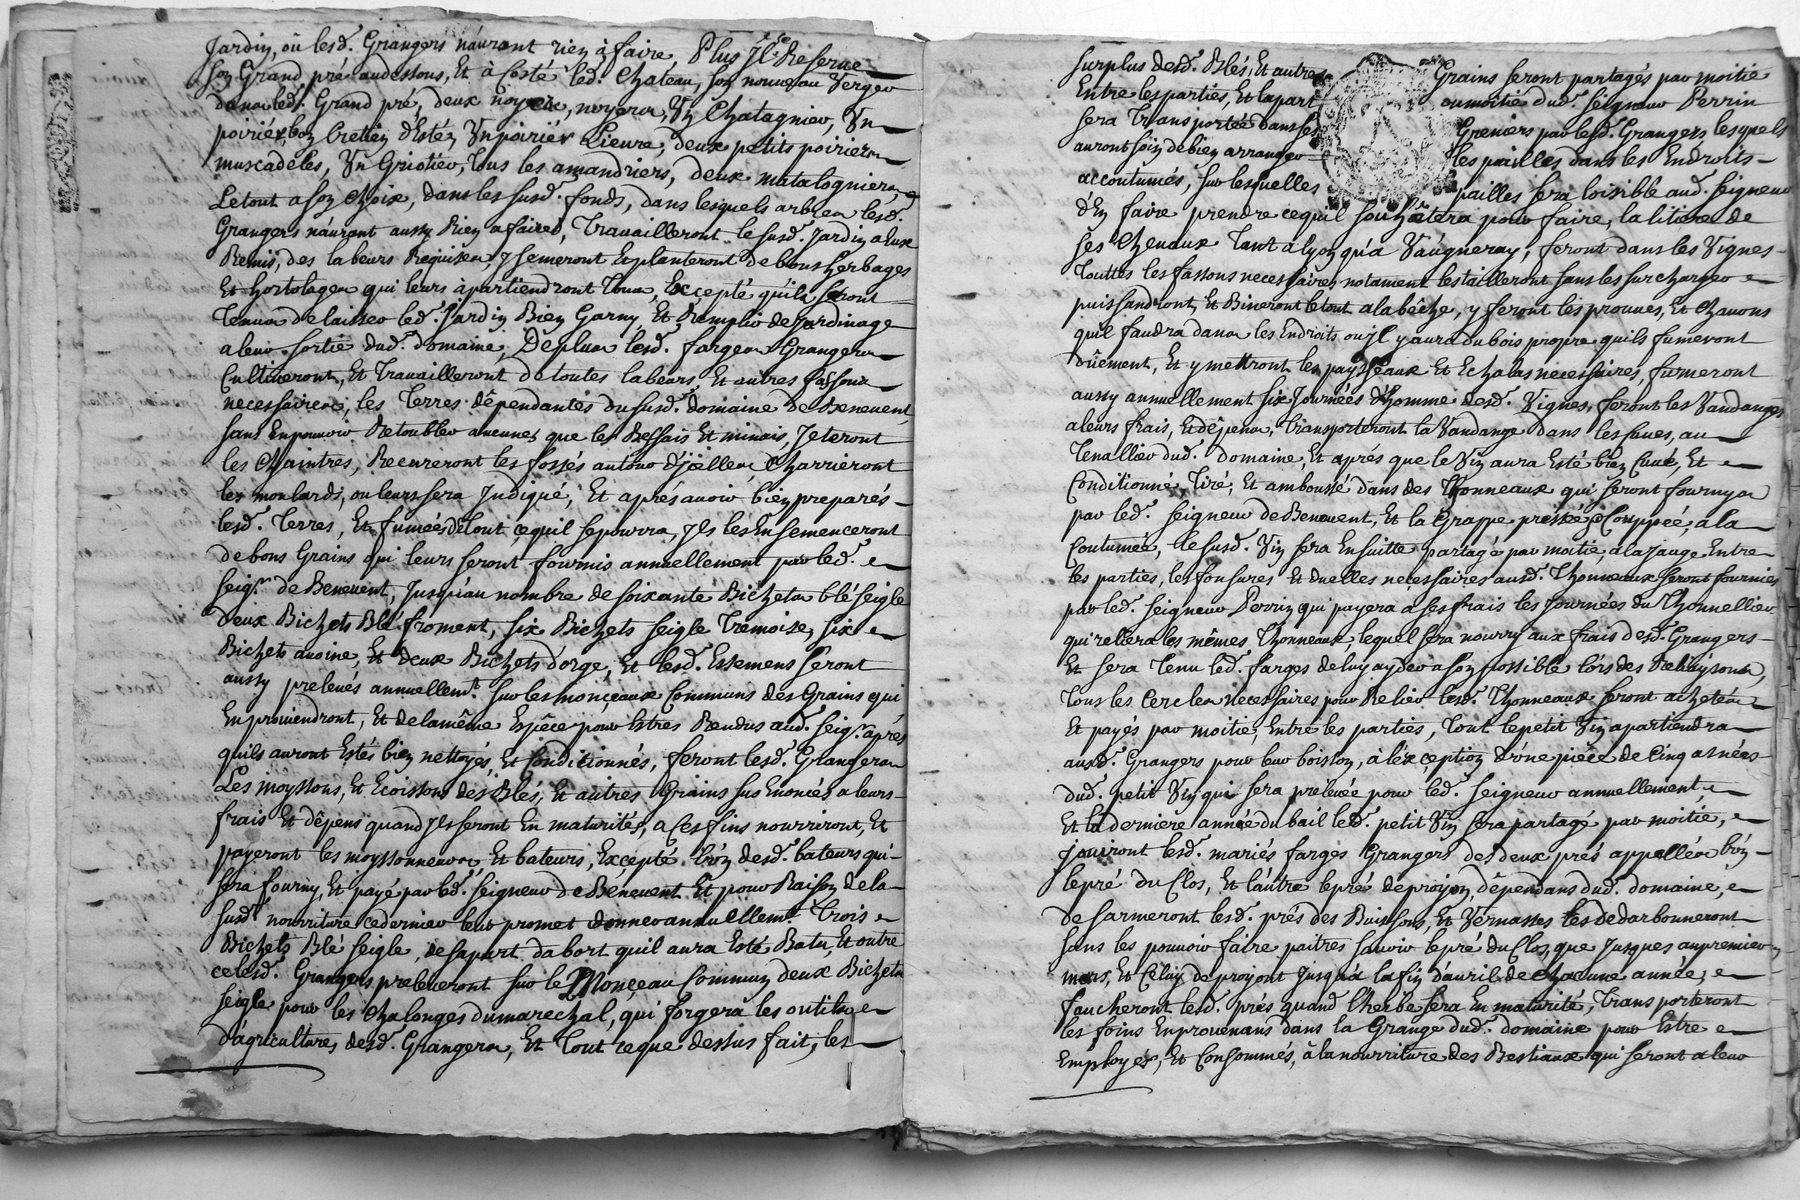 Jardin, où lesd. Grangers n'auront rien à faire, Plus Il se Reserve
son Grand pré audessous, Et à Costé led. Chateau, son nouveau Verger
dans led. Grand pré, deux noyers, noyera, Un Chatagnier, Un
poirier bon Cretien d'Esté, Un poirier Lieure, deux petits poiriers
muscadeles, Un Griotier, Tous les amandriers, deux matalogniers
Le tout a son Choix, dans les susd. fonds, dans lesquels arbres lesd.
Grangers n'auront aussy Rien a faire, Travailleront le susd. Jardin a Eux
Remis, des labeurs Requises, y semeront Explanteront de bons herbages
Et hortolages qui leurs apartiendront Tous, Excepté qu'ils seront
Tenus de laisser led. Jardin Bien Garny, Et Remplie de Jardinage
a leur sortie dud. domaine, Déplus lesd. farges Grangers
Cultiveront, Et Travailleront de toutes labeurs, Et autres fassons
necessaires, les Terres dépendantes du susd. domaine de Benevent,
sans En pouvoir Retoubler aucunes que les Bessais Et minais, Jeteront
les Chaintres, Recureront les fossés autour d'jcelles Charrieront
les moulards, ou leurs sera Indiqué, Et aprés avoir bien preparés
lesd. Terres, Et fumées de tout ce quil se pourra, Ils les Ensemenceront
de bons Grains qui leurs seront fournis annuellement par led.
seigr. de Benevent, Jusqu'au nombre de soixante Bichets blé seigle
deux Bichets Blé froment, six Bichets seigle Tremoise, six
Bichets avoine, Et deux Bichets d'orge, Et lesd. Essemens seront
aussy prelevés annuellemt. sur les monceaux Communs des Grains qui
En proviendront, Et de la même Espêce pour Estres Rendus aud. seigr. aprés
quils auront Estés bien nettoyés, Et Conditionnés, feront lesd. Grangers
Les moyssons, Et Ecoissons des Blés, Et autres Grains sus Enoncés a leurs
frais Et dêpens quand Ils seront En maturités, a Ces fins nourriront, Et
payeront les moyssonneurs Et bateurs, Excepté lùn desd. bateurs qui
sera fourny, Et payé par led. seigneur de Benevent Et pour Raison de la
susd. nourriture ce dernier leur promet donner annuellemt. Trois
Bichets Blé seigle, de sa part d'abort quil aura Esté Batu, Et outre
ce lesd. Grangers preleveront sur le Monçeau Commun deux Bichets
seigle pour les Chalonges du marechal, qui forgera les outils
d'agricultures desd. Grangers, Et Tout ce que dessus fait, les
surplus desd. Blés, Et autres Grains seront partagés par moitié
Entre les parties, Et la part ou moitié dud. seigneur Perrin
sera Transportée dans ses Greniers par lesd. Grangers lesquels
auront soin de bien arranger les pailles dans les Endroits
accoutumés, sur lesquelles pailles sera loisible aud. seigneur
d'En faire prendre ce quil souhaitera pour faire, la litiere de
ses Chevaux Tant a lyon qu'a Vaugneray, feront dans les Vignes
Touttes les fassons necessaires, notament les tailleront sans les surcharger
puis sandront, Et Bineront le tout a la bêche, y feront les prouves, Et Chavons
quil faudra dans les Endroits ou Il y aura du bois propre quils fumeront
dûement, Et y mettront les paysseaux Et Echalas necessaires, fumeront
aussy annuellement six Journées d'homme desd. Vignes, feront les Vandanges
a leurs frais, Et dêpens, Transporteront la Vandange dans les Cuves, au
Tenallier dud. domaine, Et aprés que le Vin aura Esté bien Cuvé, Et
Conditionné, Tiré, Et amboussé dans des Thonneaux qui seront fournys
par led. seigneur de Benevent, Et la Grappe pressée, Couppée, a la
Coutumée, le susd. Vin sera Ensuitte partagé par moitié, a la Jauge, Entre
les parties, les fonsures Et duelles necessaires ausd. Thonneaux seront fournies
par led. seigneur Perrin qui payera a ses frais les Journées du Thonnellier
qui reliera les mêmes Thonneaux lequel sera nourry aux frais desd. Grangers
Et sera Tenu led. farges de luy ayder a son possible lórs des Reliaysons,
Tous les Cercles necessaires pour Relier lesd. Thonneaux seront achetés
Et payés par moitié, Entre les parties, Tout le petit Vin apartiendra
ausd. Grangers pour leur boisson, a l'exception d'une piéce de Cinq asnées
dud. petit Vin qui sera prélevée pour led. seigneur annuellement
Et la derniere année du bail led. petit Vin sera partagé par moitié,
jouiront lesd. mariés farges Grangers des deux prés appellés lùn
le pré du Clos, Et l'autre le pré de proyon, dêpendans dud. domaine,
desarmeront lesd. prés des Buissons, Et Vernasses les dedarbonneront
sans les pouvoir faire paitres sçavoir le pré du Clos, que Jusques au premier
mars, Et Celuy de proyont Jusqu'a la fin d'avril de Chacune année,
faucheront lesd. prés quand l'herbe sera En maturité, Transporteront
les foins En provenans dans la Grange dud. domaine pour Estre
Employés, Et Consommés, à la nourriture des Bestiaux qui seront a leur